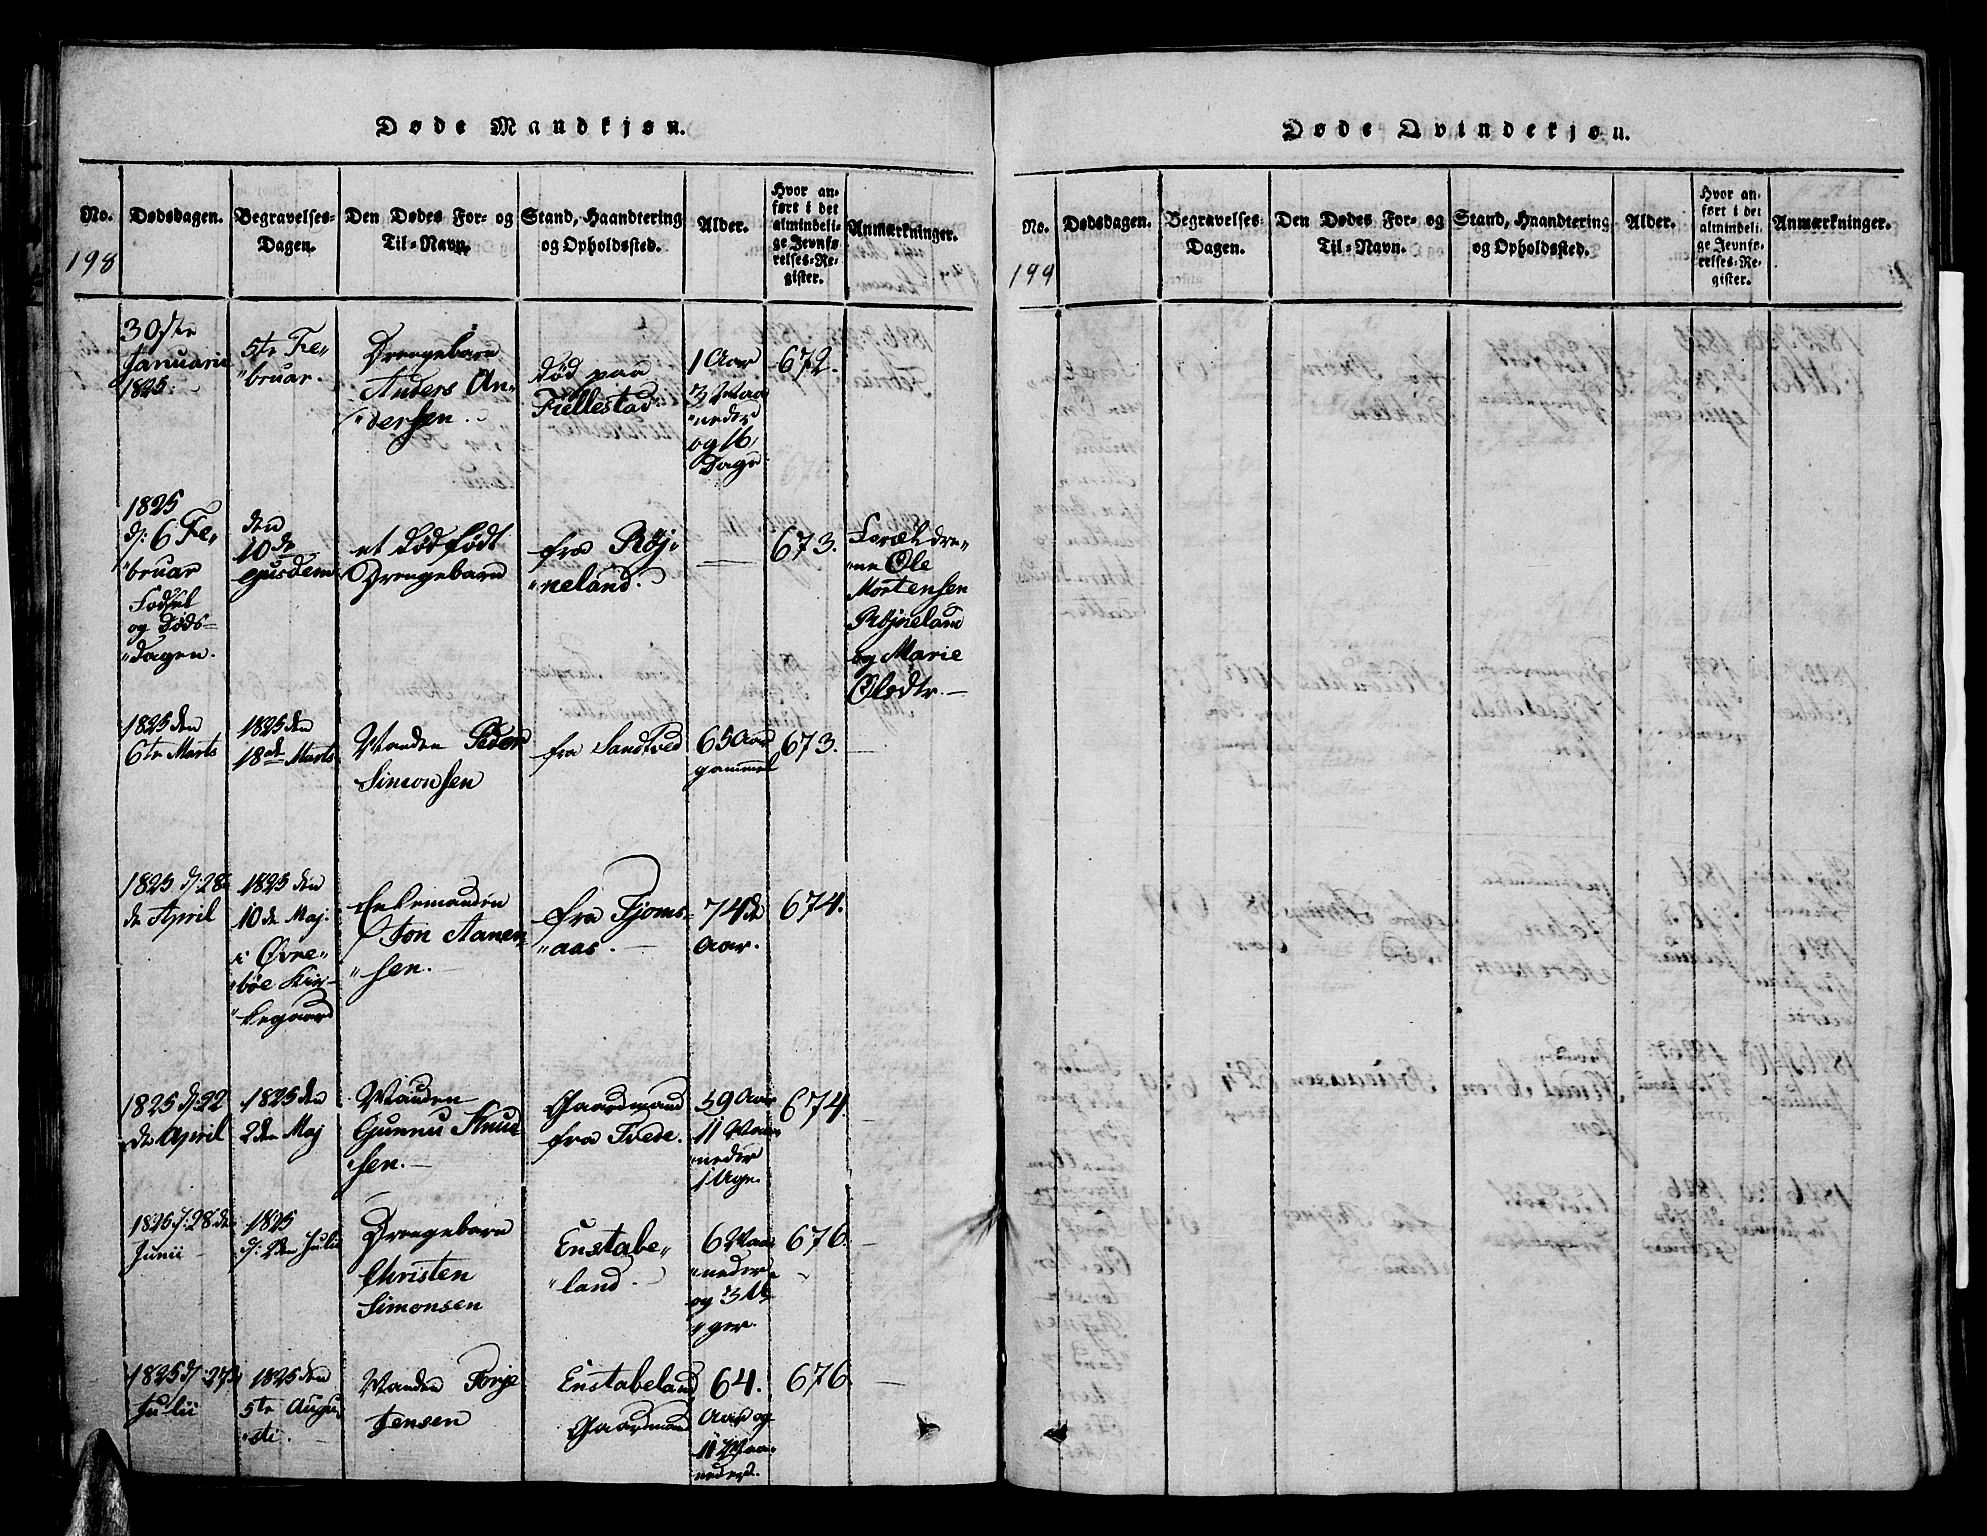 Døde Mandkjøn.
No.
Dødsdagen.
Begravelses-
Dagen.
Den Dødes For- og
Til-Navn.
Stand, Haandtering
og Opholdssted.
Alder.
Hvor an-
ført i det
almindeli-
ge Jevnfø-
relses-Re-
gister.
Anmærkninger.
198
30ste
Januarii
1825.
5te Fe-
bruar.
Drengebarn
Anders An-
dersen.
død paa
Fiellestad
1 Aar
3 Maa
neder
og 16
Dage
672.
1825
d: 6 Fe-
bruar
Fødsel
og Døds-
dagen.
den
10de
ejusdem
et dødfødt
Drengebarn
fra Røj-
neland.
673.
Forældre-
ne Ole
Mortensen
Røjneland
og Marie
Olsdtr.
1825 den
6te Marts
1825 den
18de Marts
Manden Peder
Simonsen
fra Sandtved
65 Aar
gammel
673.
1825 d: 28
de April
1825 den
10de Maj
i Øvre-
bøe Kir-
kegaard
Enkemanden
Jon Aanen-
sen.
fra Fjoms-
aas.
74de
Aar.
674.
1825 d: 22
de April
1825 den
2den Maj
Manden
Gunnu Knud
sen.
Gaardmand
fra Tvede.
59 Aar
11 Maa-
neder
1 Uge
674.
1825 d: 28de
Junii
1825
d: 2den Julii
Drengebarn
Christen
Simonsen
Enstabe-
land.
6 Maa
neder
og 3 U-
ger.
676.
1825 d: 27de
Julii
1825 den
5te Augu-
sti.
Manden Terje
Jensen
Enstabeland
Gaardmand
64.
Aar og
11 Maa-
neder.
676.
Døde Qvindekjøn.
No.
Dødsdagen.
Begravelses-
Dagen.
Den Dødes For- og
Til-Navn.
Stand, Haandtering
og Opholdssted.
Alder.
Hvor an-
ført i det
almindeli-
ge Jevnfø-
relses-Re-
gister.
Anmærkninger.
199